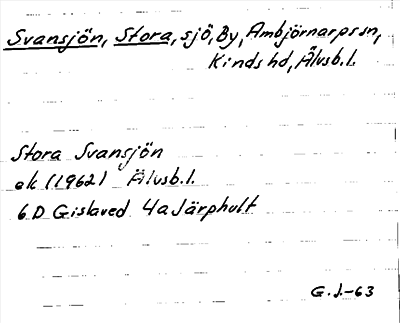 Svansjön, Stora, sjö, By, Ambjörnarps sn,
Kinds hd, Älvsb.l.
Stora Svansjön
ek (1962) Älvsb.l.
6D Gislaved 4a Järphult
G.J.-63